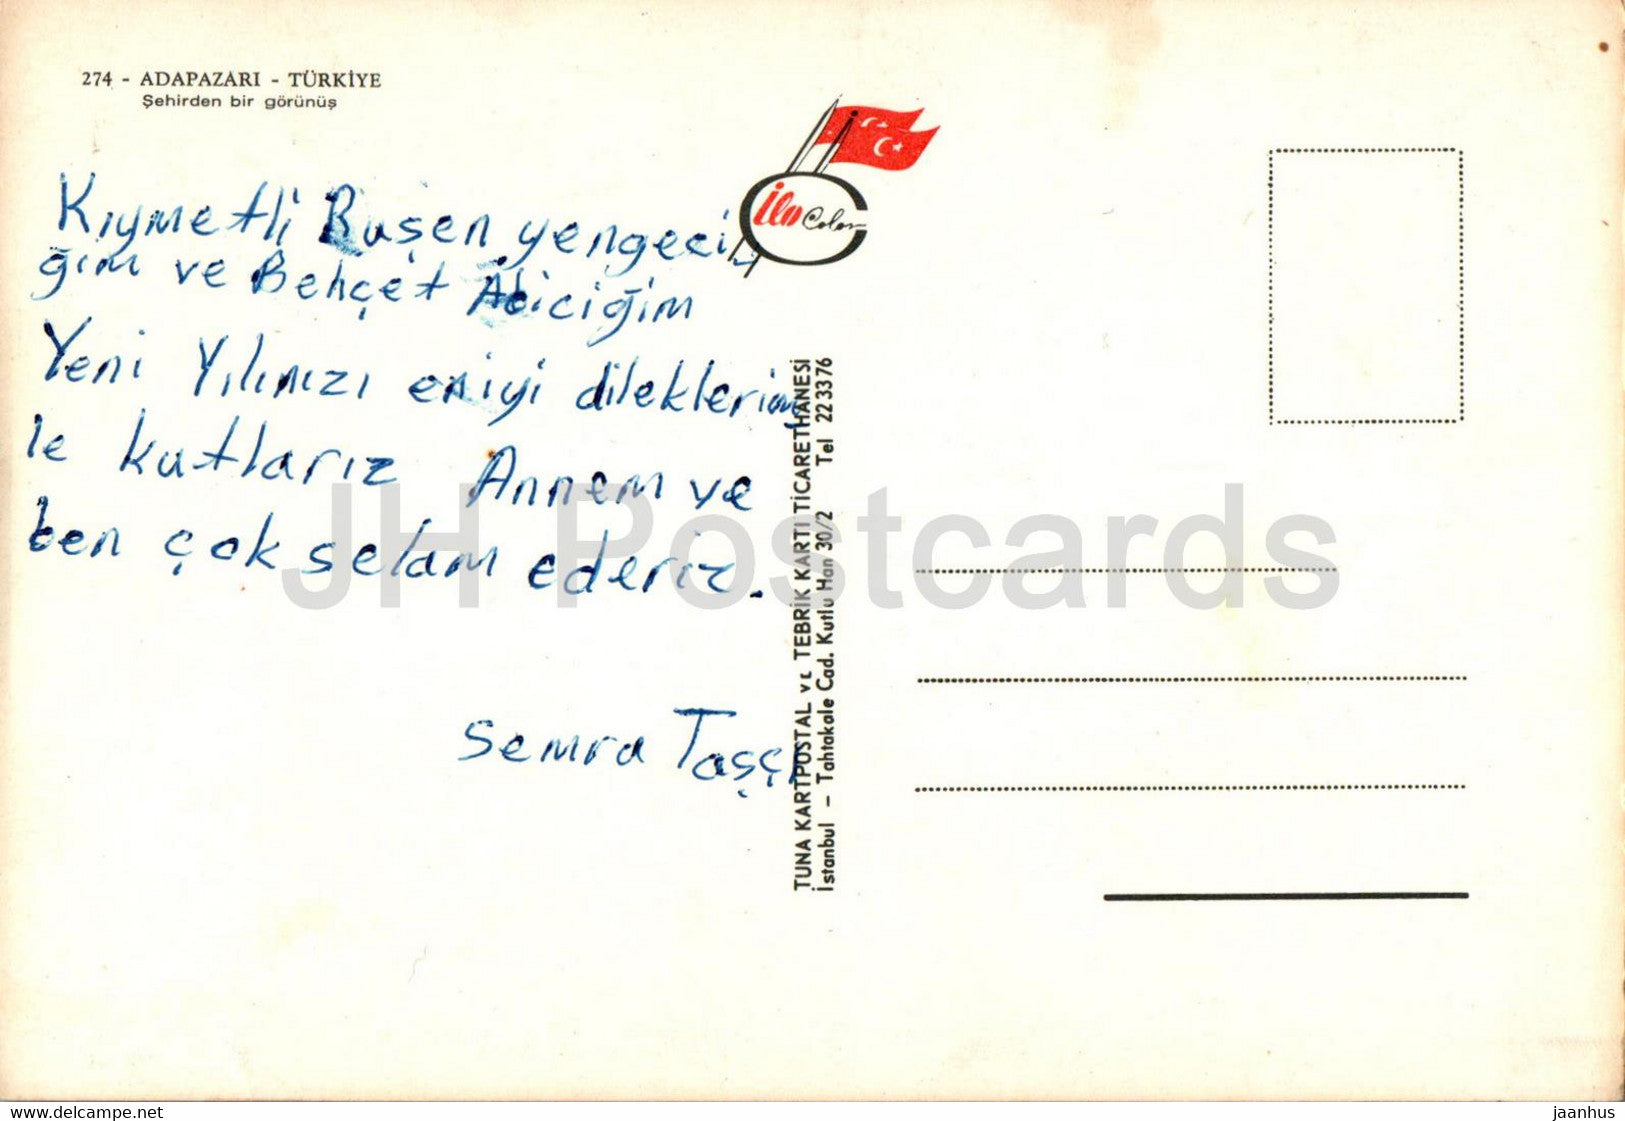 274 - ADAPAZARI - TÜRKİYE
Şehirden bir görünüş
İlo Color
Kıymetli Ruşen yengeci-
ğim ve Behçet Abiciğim
Yeni Yılınızı eniyi dileklerim
le kutlarız Annem ve
ben çok selam ederiz.
Semra Taşçı
TUNA KARTPOSTAL ve TEBRİK KARTI TİCARETHANESİ
İstanbul - Tahtakale Cad. Kutlu Han 30/2 Tel 223376
JH Postcards
www.delcampe.net
jaanhus